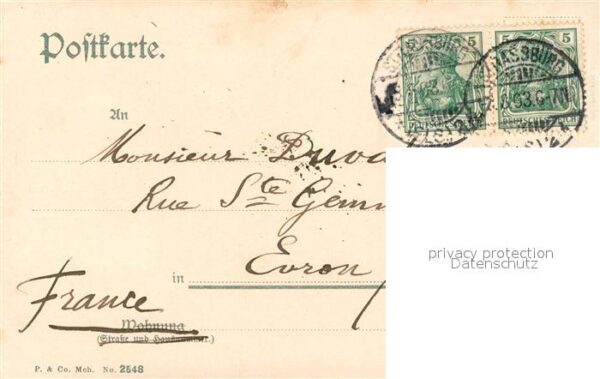 Postkarte.
5 5
STRASSBURG
An
Monsieur Duva
Rue Ste Gemm
in Evron
France
Wohnung
(Straße und Hausnummer.)
P. & Co. Mch. No. 2548
privacy protection
Datenschutz